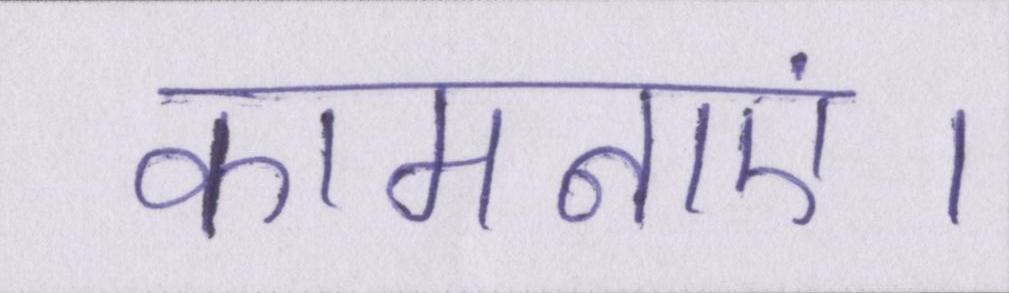 कामनाएं।